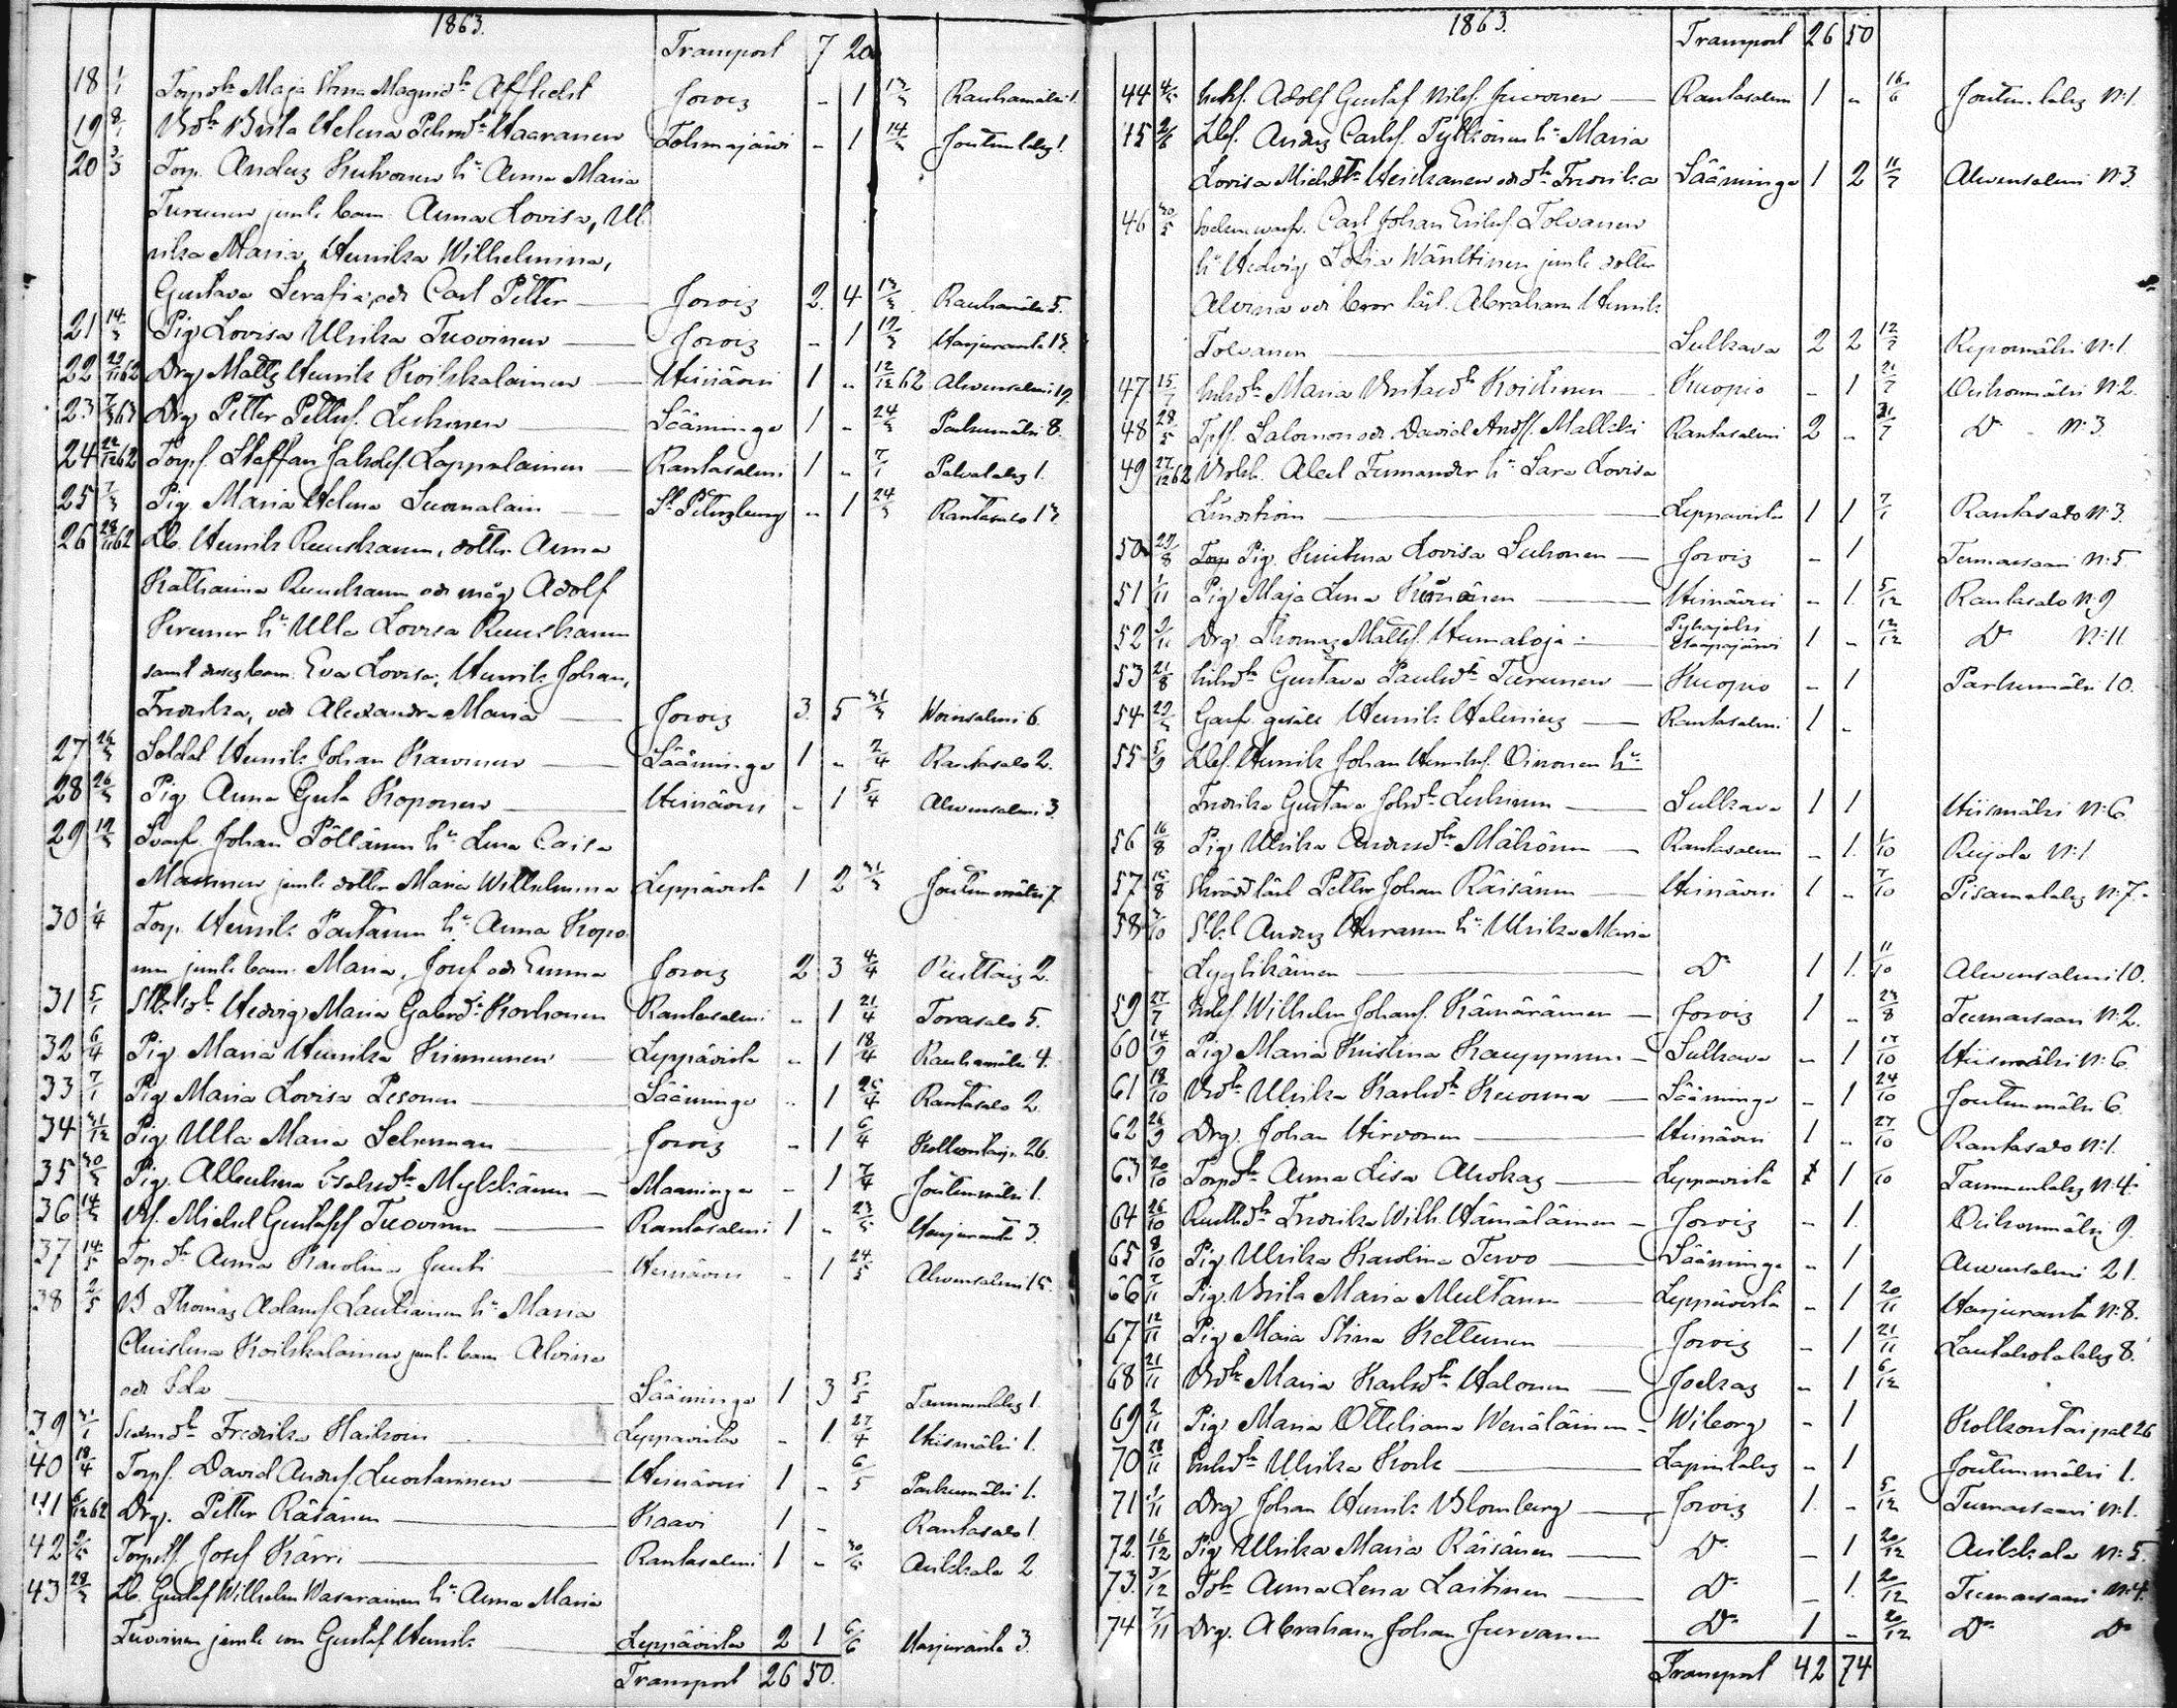 1863.
Transport 7 20
18 1/1 Torp.dr Maja Stina Magnid.r Afflecht Jorois - 1 13/3 Rauhamäki 1.
19 8/1 Bd.r Brita Helena Pehrsd.r Haaranen Tohmajärvi - 1 14/3 Joutenlaks 1.
20 3/3 Torp. Anders Kukonen h:u Anna Maria
Turunen jemte barn Anna Lovisa, Ul
rika Maria, Henrika Wilhelmina,
Gustava Serafia och Carl Petter Jorois 2. 4 13/3 Rauhamäki 5.
21 14/3 Pig Lovisa Ulrika Tuovinen Jorois - 1 19/3 Harjuranta 13.
22 29/11 62 Drg Matts Henrik Koikkalainen Heinävesi 1 - 12/12 62 Ahvensalmi 19.
23 7/3 63 Drg Petter Petters. Leskinen Sääminge 1 - 24/3 Parkumäki 8.
24 22/12 62 Torps. Staffan Jakobs. Lappalainen Rantasalmi 1 - 7/1 Palvalaks 1.
25 7/3 Pig Maria Helena Suomalain S:t Petersburg - 1 24/3 Rantasalo 13
26 28/11 62 Lb. Henrik Ruuskanen, dotter Anna
Katharina Ruuskanen och måg Adolf
h:u Ulla Lovisa Ruuskanen
samt deras barn Eva Lovisa, Henrik Johan,
Fredrika, och Alexandra Maria Jorois 3. 5 31/3 Voinsalmi 6.
27 26/3 Soldat Henrik Johan Sääminge 1 - 2/4 Rantasalo 2.
28 26/3 Pig Anna Greta Koponen Heinävesi - 1 5/4 Ahvensalmi 3.
29 19/3 Svarf. Johan Pöllänen h:u Lena Caisa
jemte dotter Maria Wilhelmina Leppävirta 1 2 31/3 Joutenmäki 7
30 1/4 Torp. Henrik Partanen h:u Anna Kopo
nen jemte barn Maria, Josef och Emma Jorois 2 3 4/4 2.
31 5/1 Hedvig Maria Gabr.dr Korhonen Rantasalmi - 1 21/4 Torasalo 5.
32 6/4 Pig Maria Henrika Kinnunen Leppävirta - 1 18/4 Rauhamäki 4.
33 7/1 Pig Maria Lovisa Pesonen Sääminge - 1 25/4 Rantasalo 2
34 31/12 Pig Ulla Maria Sehrman Jorois - 1 6/4 26.
35 30/3 Pig. Albertina Mykkänen Maaninga - 1 7/4 Joutenmäki 1.
36 14/3 Michel Gustafs. Tuovinen Rantasalmi 1 - 23/5 Harjuranta 3.
37 14/5 Torp.dr Anna Karolina Juuti Heinävesi - 1 24/5 Ahvensalmi 15.
38 2/5 B Thomas Adams. Lautiainen h:u Maria
Christina Koikkalainen jemte barn Alvina
och Ida Sääminge 1 3 5/5 Tammenlaks 1.
39 31/1 Fredrika Leppävirta - 1. 27/4 Hiismäki 1.
40 18/4 Torps. David Anders. Luostarinen Heinävesi 1 - 6/5 Parkumäki 1.
41 6/12 62 Drg. Petter Räsänen Kaavi 1 - Rantasalo 1.
42 3/5 Josef Kärri Rantasalmi 1 - 30/5 Asikkala 2
43 28/3 Lb. Gustaf Wilhelm Wasarainen h:u Anna Maria
Tuovinen jemte son Gustaf Henrik Leppävirta 2 1 6/6 Harjuranta 3.
Transport 26 50.
1863.
Transport 26 50
44 4/5 Adolf Gustaf Nils. Juvonen Rantasalmi 1 - 16/6 Joutenlaks N:1.
45 2/6 Lbs. Anders Carls. Pylkkönen h:u Maria
Lovisa Mich.dr Heiskanen och d:r Fredrika Sääminge 1 2 11/7 Ahvensalmi N:3.
46 30/5 Carl Johan Eriks. Tolvanen
h:u Hedvig Sofia Wänttinen jemte dotter
Alvina och bror lärl. Abraham Henrik
Tolvanen Sulkava 2 2 12/7 Reponmäki N:1.
47 15/7 Maria Koistinen Kuopio - 1 21/7 Oikonmäki N:2.
48 28/5 Salomon och David Anders. Mallski Rantasalmi 2 - 21/7 D:o N:3.
49 27/12 62 Abel Fernander h:u Sara Lovisa
Lindström Leppävirta 1 1 7/1 Rantasalo N:3.
50 29/8 Torp Pig. Kristina Lovisa Suhonen Jorois - 1 Temansaari N:5.
51 1/11 Pig Maja Lena Heinävesi - 1. 5/12 Rantasalo N:9
52 3/11 Drg. Thomas Matts. Humaloja Pyhäjoki Haapajärvi 1 - 12/12 D:o N:11.
53 21/8 Gustava Paulsd.r Turunen Kuopio - 1 Parkumäki 10.
54 29/5 Garf. gesäll Henrik Helenius Rantasalmi 1 -
55 5/9 Lbs. Henrik Johan Henriks. Oinonen h:u
Fredrika Gustava Johsd.r Leskinen Sulkava 1 1 Hiismäki N:6.
56 16/8 Pig Ulrika Andersd.r Mähönen Rantasalmi - 1. 1/10 Reijola N:1
57 15/8 Skrädd.lärl. Petter Johan Räisänen Heinävesi 1 - 7/10 Pisamalaks N:7.
58 3/10 Anders h:u Ulrika Maria
Lyytikäinen D:o 1 1. 11/10 Ahvensalmi 10.
59 27/7 Wilhelm Johans. Kämäräinen Jorois 1 - 23/8 Temansaari N:2.
60 14/9 Pig Maria Kristina Kauppinen Sulkava - 1 17/10 Hiismäki N:6.
61 18/10 Bd.r Ulrika Karlsd.r Sääminge - 1 24/10 Joutenmäki 6.
62 26/9 Drg. Johan Hirvonen Heinävesi 1 - 27/10 Rantasalo N:1.
63 20/10 Torpd.r Anna Lisa Auvokas Leppävirta 1 10 Tammenlaks N:4.
64 26/10 Fredrika Wilh. Hämäläinen Jorois - 1. Oikonmäki 9.
65 8/10 Pig Ulrika Karolina Tervo Sääminge - 1 Ahvensalmi 21.
66 7/11 Pig. Brita Maria Multanen Leppävirta - 1 20/11 Harjuranta N:8.
67 12/11 Pig Maja Stina Kettunen Jorois - 1 21/11 8.
68 21/11 Bd.r Maria Karlsd.r Halonen Jockas - 1 6/12
69 2/11 Pig. Maria Ottiliana Wenäläinen Wiborg - 1 Kolkontaipal 26
70 28/11 Ulrika Kork Lapinlaks - 1 Joutenmäki 1.
71 3/11 Drg Johan Henrik Blomberg Jorois 1. - 5/12 Temansaari N:1.
72. 16/12 Pig Ulrika Maria Räisänen D:o - 1 20/12 Asikkala N:5.
73. 3/12 Anna Lena Laitinen D:o - 1. 20/12 Temansaari N:4.
74 7/11 Drg. Abraham Johan Jurvanen D:o 1 - 20/12 D:o D:o
Transport 42 74